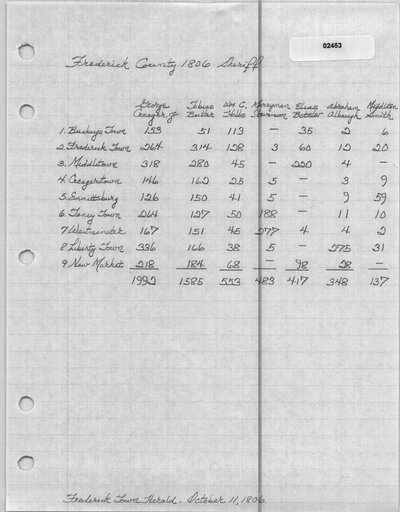 02453
Frederick County 1806 Sheriff
George Tobias Wm C. Merryman Elias Abraham Middleton
Creager Jr Butler Hobbs Stevenson Albaugh Smith
1. Buckeys Town 153 51 113 — 35 2 6
2. Frederick Town 264 314 128 3 60 12 20
3. Middletown 318 280 45 — 220 4 —
4. Creagerstown 146 162 25 5 — 3 9
5. Emmittsburg 126 150 41 5 — 9 59
6. Taney Town 264 127 50 188 — 11 10
7. Westminster 167 151 45 277 4 4 2
8. Liberty Town 336 166 38 5 — 275 31
9. New Market 218 184 68 — 98 28 —
1992 1585 553 483 417 348 137
Frederick Town Herald. October 11, 1806.